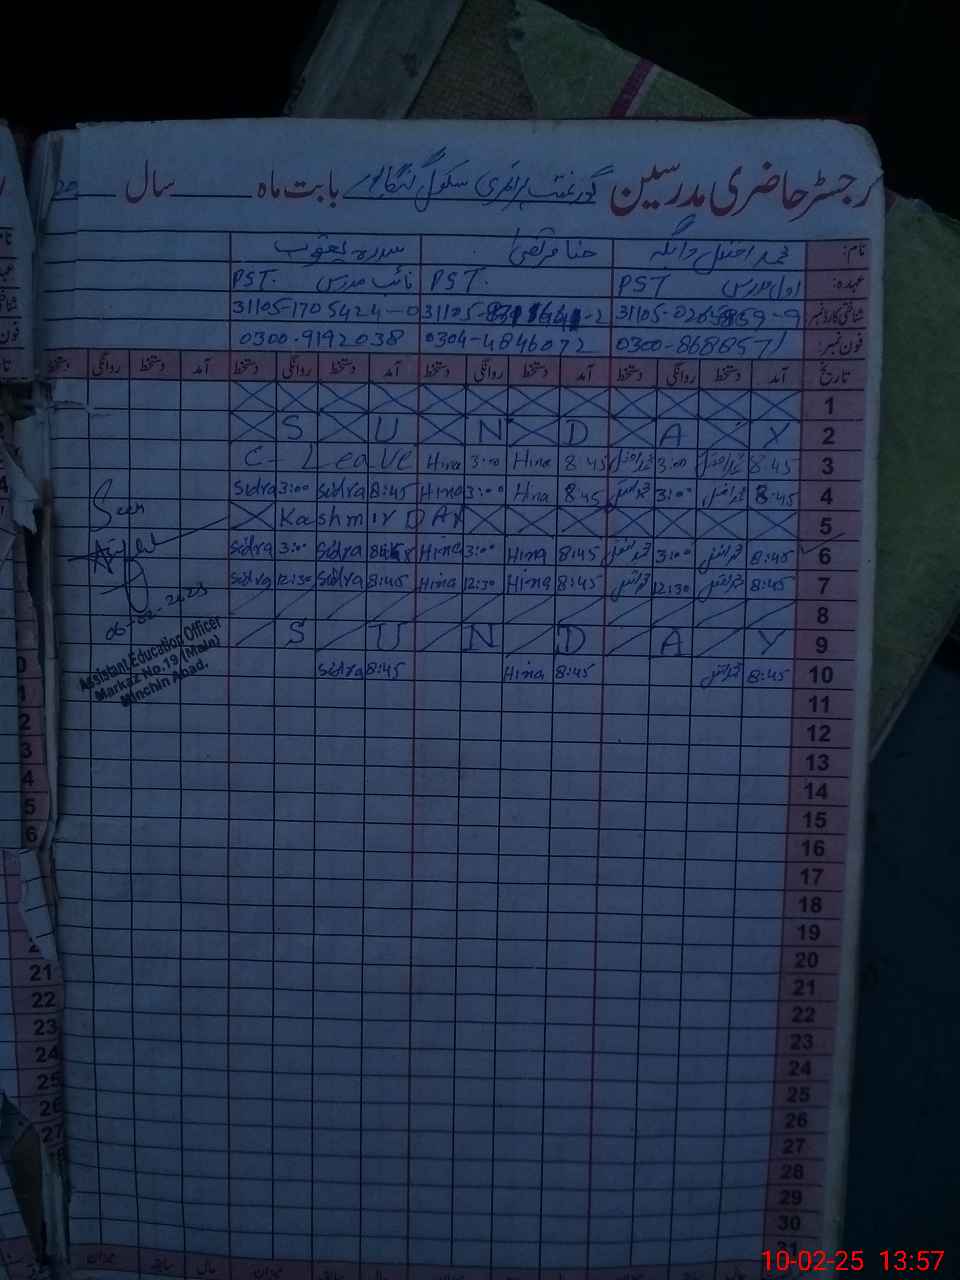 رجسٹر حاضری مدرسین گورنمنٹ پرائمری سکول بابت ماہ سال 20
نام: محمد افضل حنا مرتضیٰ سدرہ یعقوب
عہدہ: اول مدرس PST PST. نائب مدرس PST.
شناختی کارڈ نمبر 31105-1705424-0
فون نمبر: 0300-8686571 0304-4846072 0300-9192038
تاریخ آمد دستخط روانگی دستخط آمد دستخط روانگی دستخط آمد دستخط روانگی دستخط آمد دستخط روانگی دستخط
1
S U N D A Y 2
C- Leave Hina 3:00 Hina 8:45 محمد افضل 3:00 محمد افضل 8:45 3
Seen Sidra 3:00 Sidra 8:45 Hina 3:00 Hina 8:45 محمد افضل 3:00 محمد افضل 8:45 4
Kashmir DAY 5
Sidra 3:00 Sidra Hina 3:00 Hina 8:45 محمد افضل 3:00 محمد افضل 8:45 6
Sidra 12:30 Sidra 8:45 Hina 12:30 Hina 8:45 محمد افضل 12:30 محمد افضل 8:45 7
8
S U N D A Y 9
Sidra 8:45 Hina 8:45 محمد افضل 8:45 10
Assistant Education Officer
Markaz No.19 (Main)
Minchin Abad.
11
12
13
14
15
16
17
18
19
20
21
22
23
24
25
26
27
28
29
30
31
10-02-25 13:57